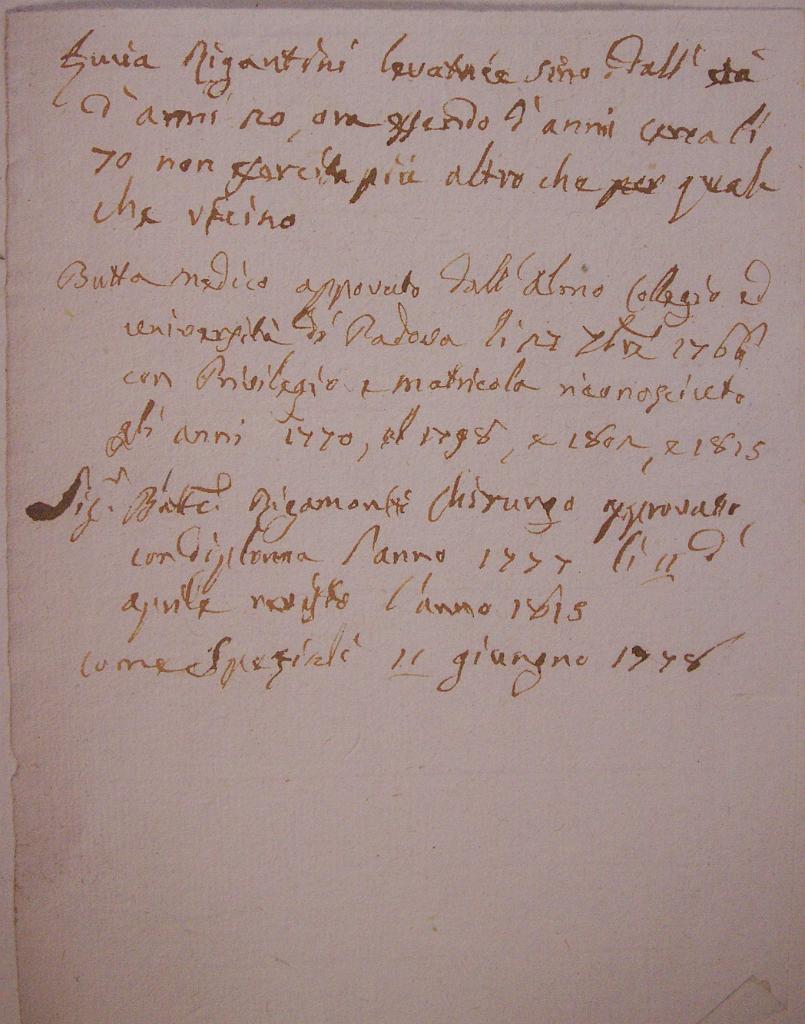 Lucia Rigantini levatrice sino dall' età
d' anni 20, ora essendo d' anni cerca li
70 non esercita più altro che per qual
che vicino
Butta medico approvato dall' Almo Collegio ed
università di Padova li 27 7bre 1766
con Privilegio e matricola riconosciuto
gli anni 1770, el 1798, e 1802, e 1815
Sigr Batta Rigamonti Chirurgo approvato
con diploma l'anno 1777 li 11 d'
aprile l'anno 1815
come Speziale 11 giungno 1778